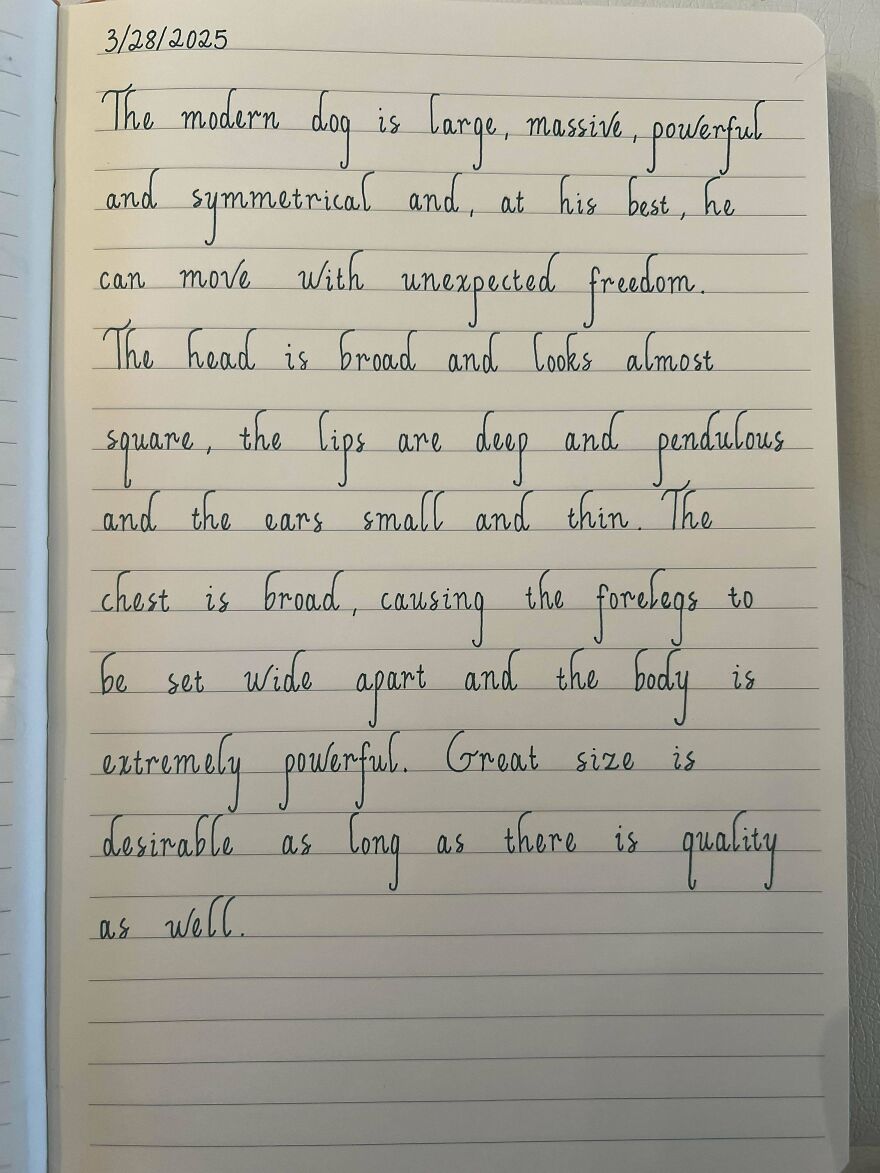 3/28/2025
The modern dog is large, massive, powerful
and symmetrical and, at his best, he
can move with unexpected freedom.
The head is broad and looks almost
square, the lips are deep and pendulous
and the ears small and thin. The
chest is broad, causing the forelegs to
be set wide apart and the body is
extremely powerful. Great size is
desirable as long as there is quality
as well.